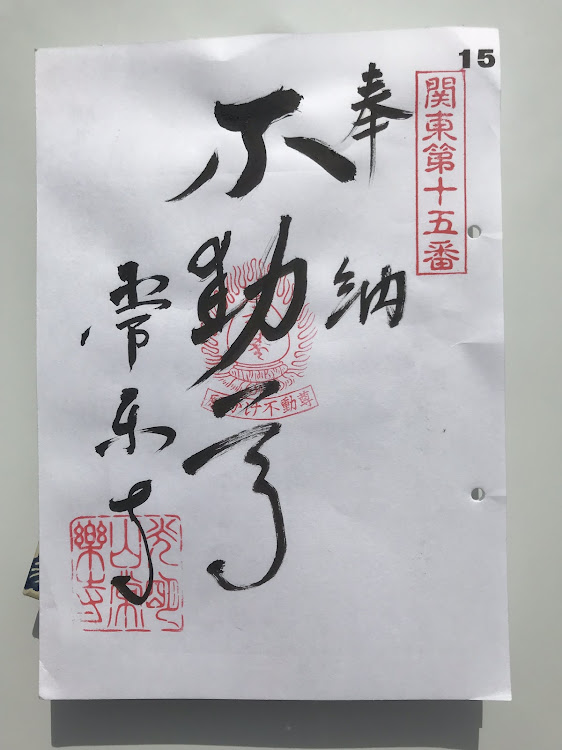 15
関東第十五番
奉納
不動尊
不動尊
常楽寺
光明山常樂寺